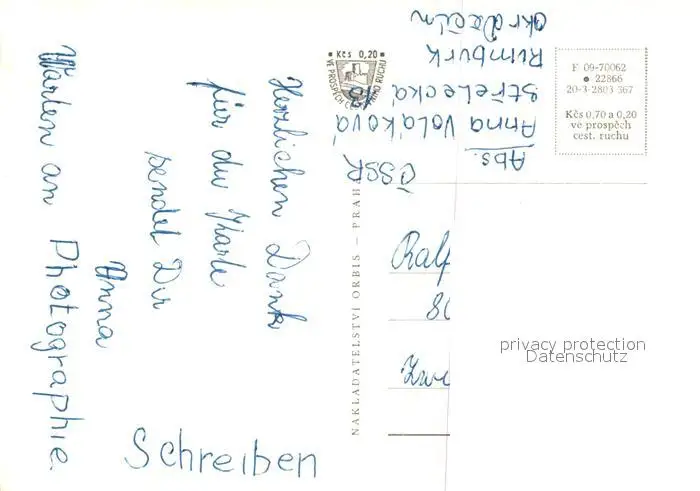 Herzlichen Dank
für die Karte
sendet Dir
Anna
Warten an Photographie
Schreiben
Kčs 0,20
VE PROSPĚCH CESTOVNÍHO RUCHU
Abs. Anna Voláková
Střelecká
Rumburk
okr Děčín
ČSSR
F 09-70062
22866
20-3-2803 367
Kčs 0,70 a 0,20
ve prospěch
cest. ruchu
NAKLADATELSTVÍ ORBIS — PRAHA
Ralf
privacy protection
Datenschutz